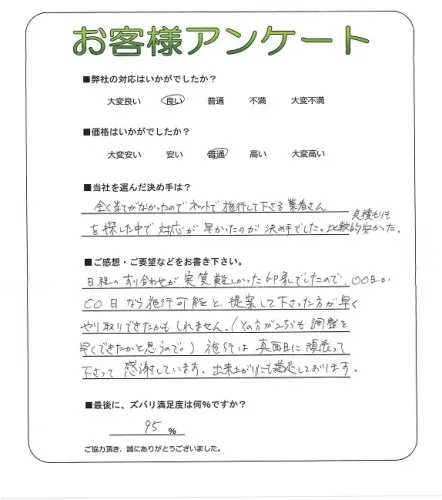 お客様アンケート
■弊社の対応はいかがでしたか？
大変良い 良い 普通 不満 大変不満
■価格はいかがでしたか？
大変安い 安い 普通 高い 大変高い
■当社を選んだ決め手は？
全く当てがなかったのでネットで施行して下さる業者さん
を探した中で対応が早かったのが決め手でした。比較的安かった。
見積もりも
■ご感想・ご要望などをお書き下さい。
日程のすり合わせが実質難しかった印象でしたので、〇〇日か
〇〇日なら施行可能と、提案して下さった方が早く
やり取りできたかもしれません。(その方がこちらも調整を
早くできたかと思うので。) 施行は真面目に頑張って
下さって感謝しています。出来上がりにも満足しております。
■最後に、ズバリ満足度は何%ですか？
95 %
ご協力頂き、誠にありがとうございました。